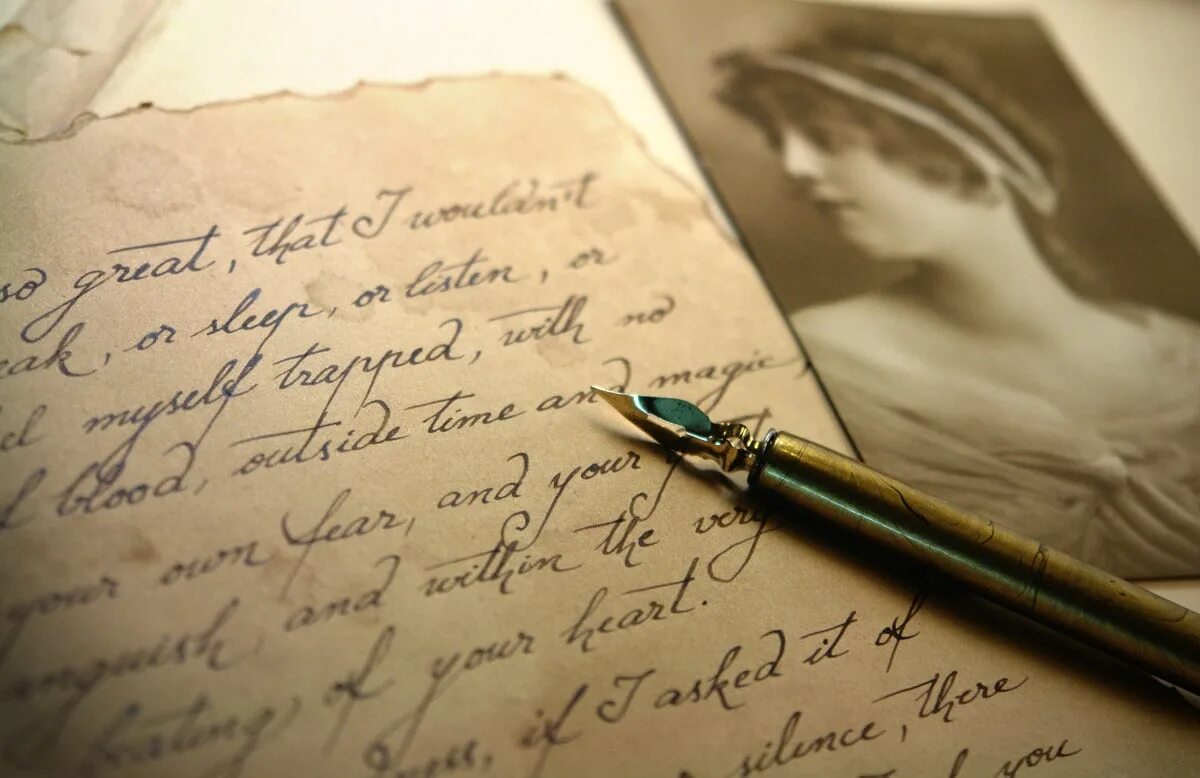 so great, that I wouldn't
, or sleep, or listen, or
myself trapped, with no
blood, outside time and magic,
your own fear, and your
and within the very
beating, of your heart.
, if I asked it of
silence, there
you